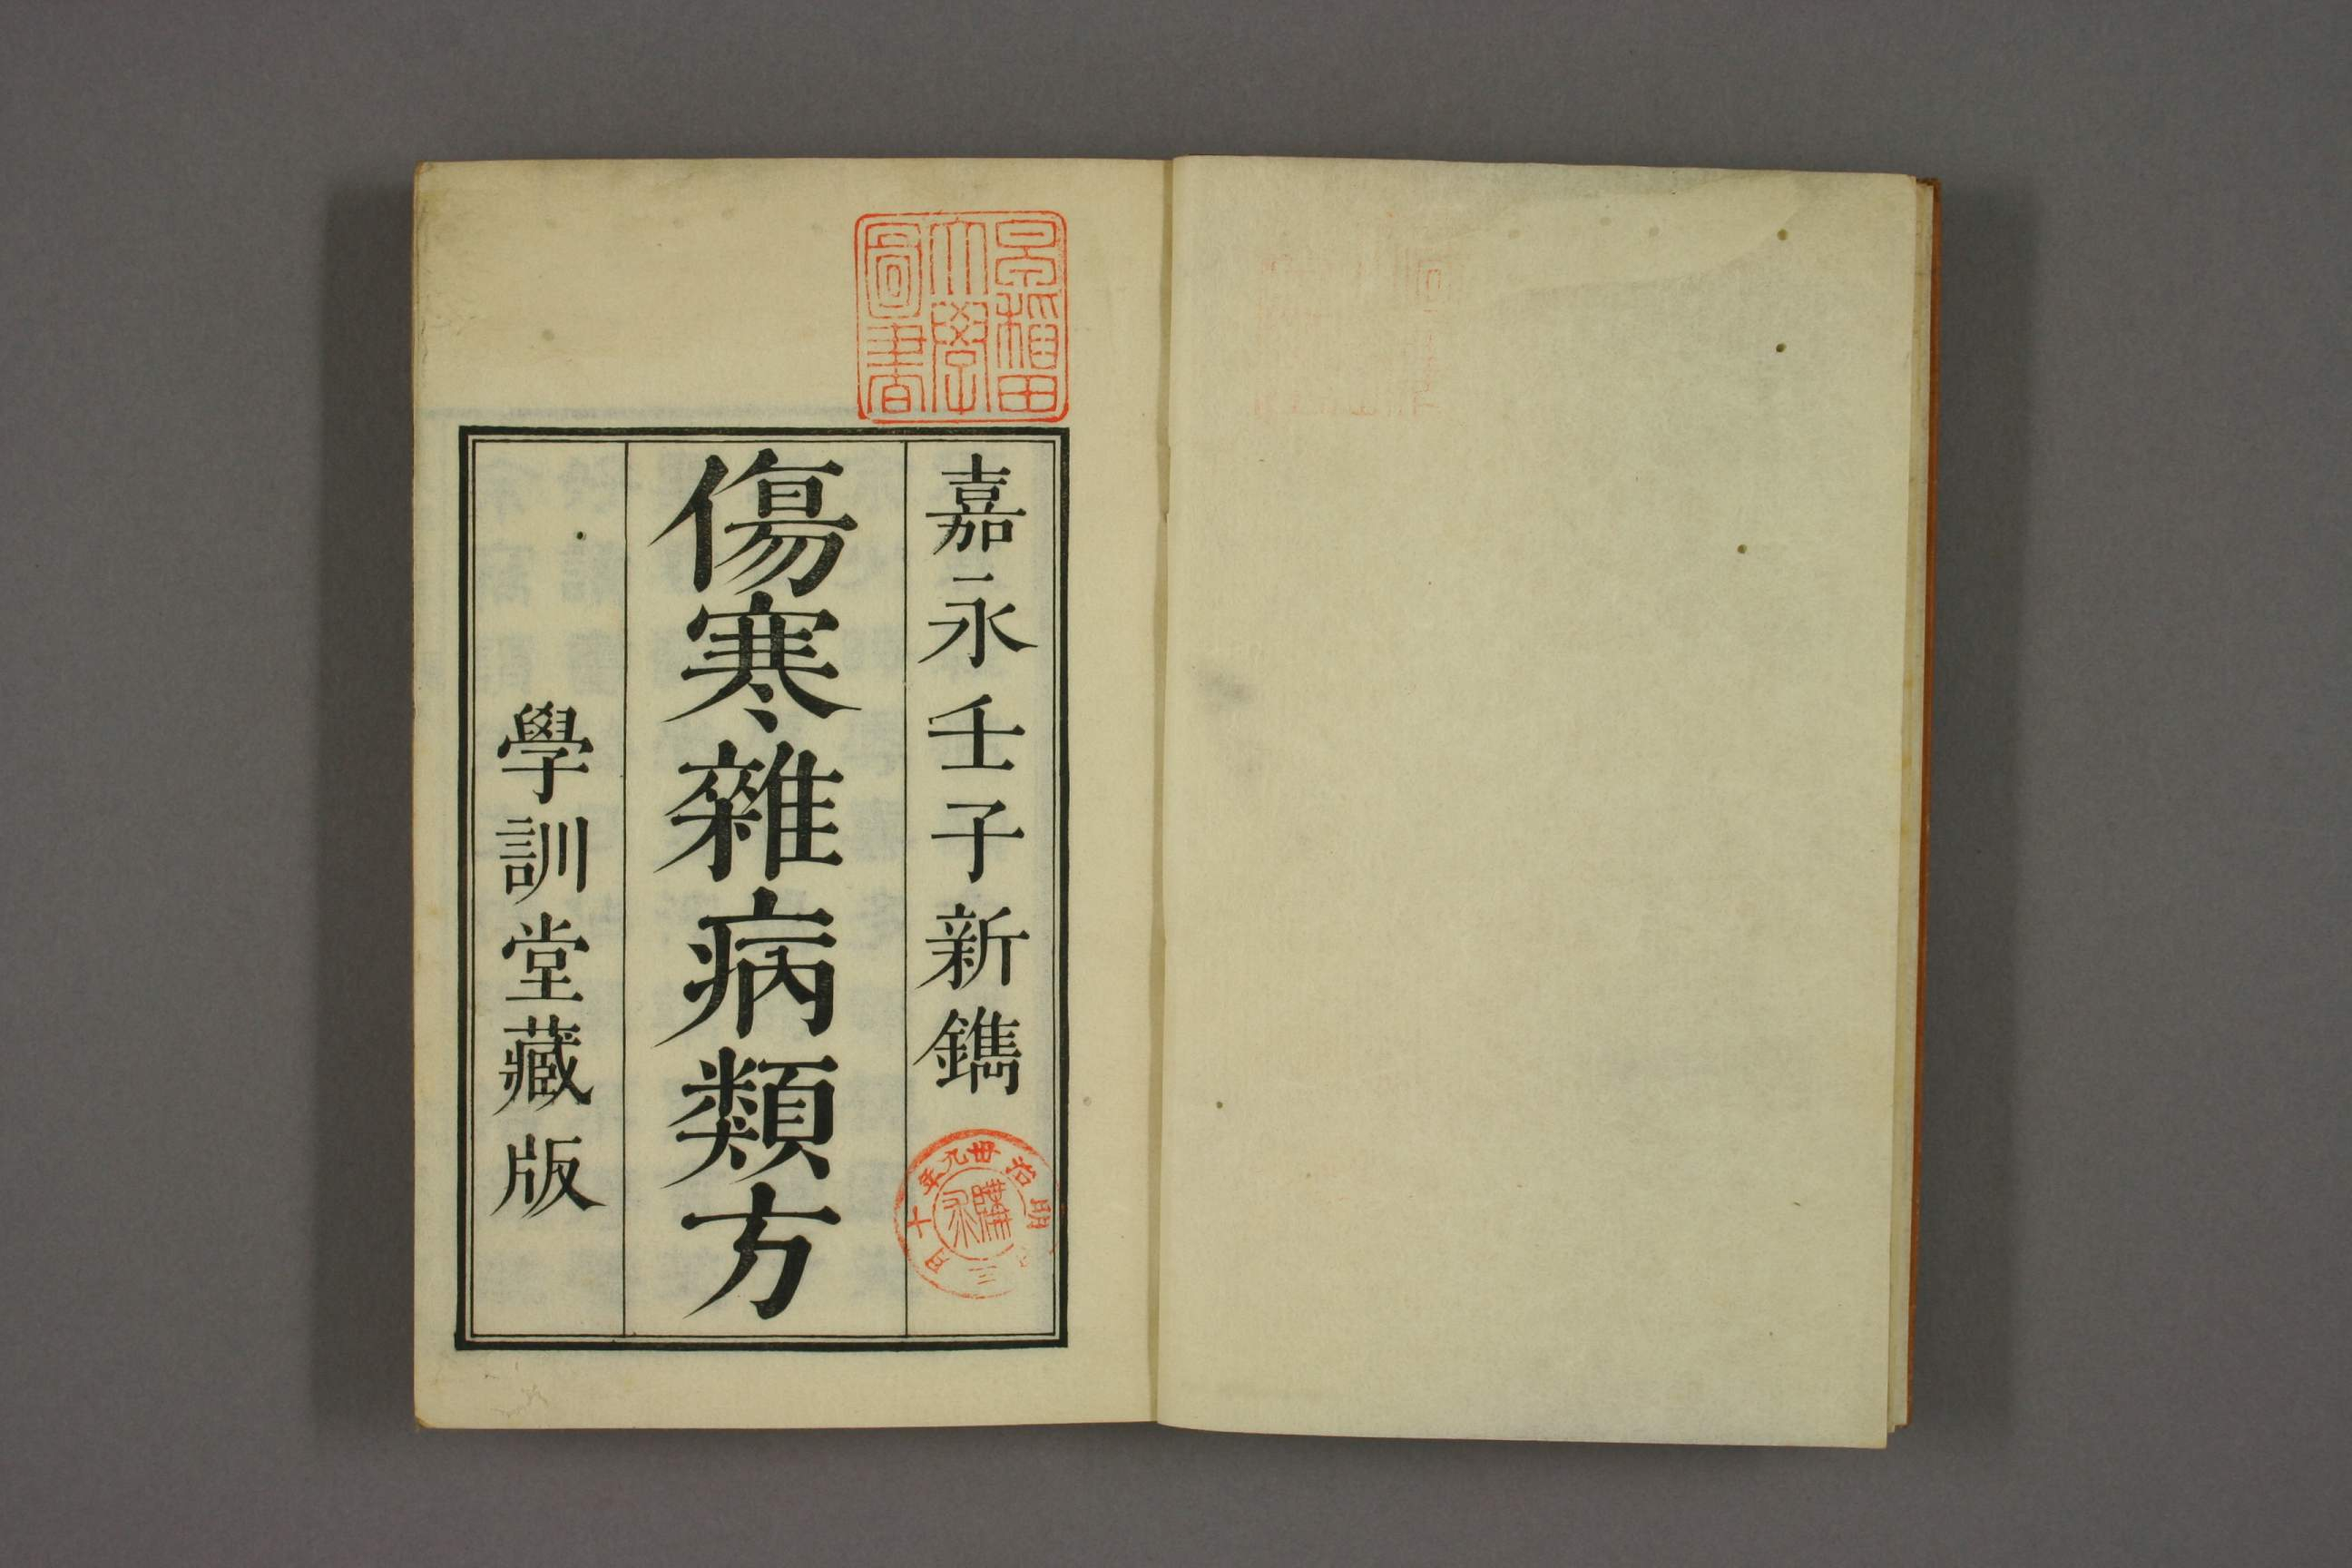 早稲田
大學
圖書
嘉永壬子新鐫
傷寒雜病類方
學訓堂藏版
明治卅九年十
日
購求